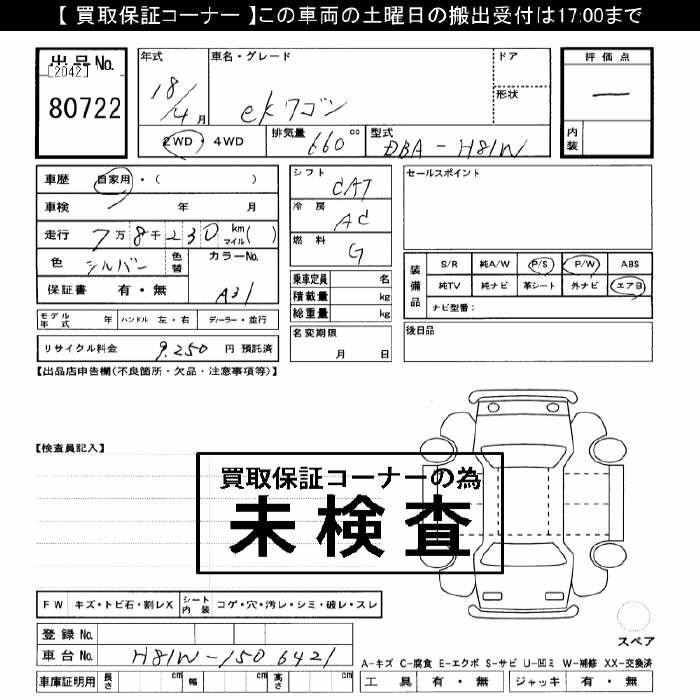 【 買取保証コーナー 】この車両の土曜日の搬出受付は17:00まで
出品No.
[2042]
80722
年式
18/4月
車名・グレード
ekワゴン
ドア
形状
評価点
—
内装
2WD・4WD
排気量 660 cc
型式 DBA-H81W
車歴 自家用・( )
車検 年 月
走行 7万8千230 km マイル( )
色 シルバー 色替
カラーNo. A31
保証書 有・無
モデル年式 年 ハンドル 左・右 ディーラー・並行
リサイクル料金 9,250 円 預託済
シフト CAT
冷房 AC
燃料 G
乗車定員 名
積載量 kg
総重量 kg
名変期限 月 日
セールスポイント
装備品
S/R 純A/W P/S P/W ABS
純TV 純ナビ 革シート 外ナビ エアB
ナビ型番:
後日品
【出品店申告欄(不良箇所・欠品・注意事項等)】
【検査員記入】
買取保証コーナーの為
未検査
FW キズ・トビ石・割レX シート内装 コゲ・穴・汚レ・シミ・破レ・スレ
登録No.
車台No. H81W-1506421
車庫証明用 長さ cm 幅 cm 高さ cm
スペア
A-キズ C-腐食 E-エクボ S-サビ U-凹ミ W-補修 XX-交換済
工具 有・無 ジャッキ 有・無